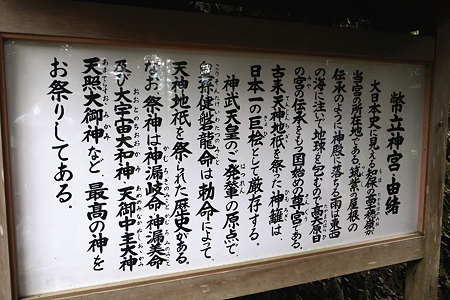 幣立神宮由緒
大日本史に見える知保の高千穂嶺が
当宮の所在地である。筑紫の屋根の
伝承のように神殿に落ちる雨は東西
の海に注いで地球を包むので高天原日
の宮の伝承をもつ国始めの尊宮である。
古来天神地祇を祭った神籬は
日本一の巨桧として厳存する。
神武天皇のご発輦の原点で
皇孫健磐龍命は勅命によって、
天神地祇を祭られた歴史がある。
なお、祭神は神漏岐命 神漏美命
及び大宇宙大和神 天御中主大神
天照大御神など、最高の神を
お祭りしてある。